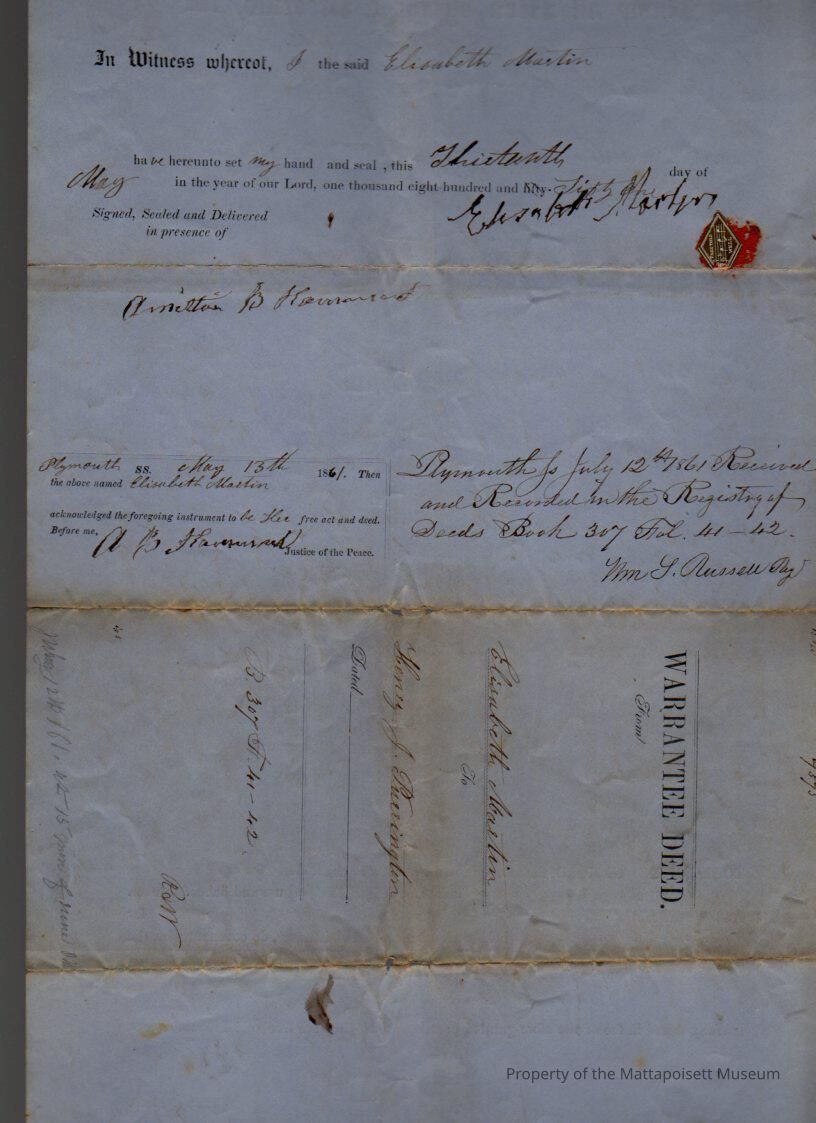 In Witness whereof, I the said Elisabeth Martin
have hereunto set my hand and seal, this Thirteenth
day of
May in the year of our Lord, one thousand eight hundred and fifty-
Signed, Sealed and Delivered
in presence of
Elisabeth Martin
B
Plymouth SS. May 13th 1861. Then
the above named Elisabeth Martin
acknowledged the foregoing instrument to be Her free act and deed.
Before me,
A B
Justice of the Peace.
Plymouth Ss July 12th 1861 Received
and Recorded in the Registry of
Deeds Book 307 Fol. 41-42.
Wm S. Russell Reg
WARRANTEE DEED.
From
Elisabeth Martin
To
Henry J. Purrington
Dated
B 307 F. 41-42.
Property of the Mattapoisett Museum